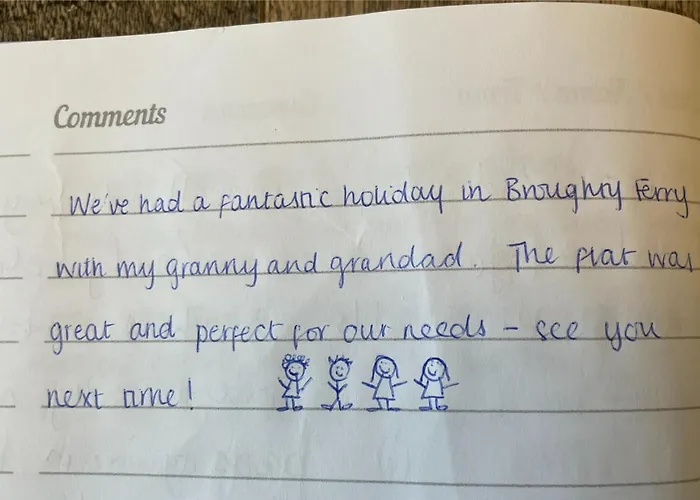 Comments
We've had a fantastic holiday in Broughty Ferry
with my granny and grandad. The flat was
great and perfect for our needs - see you
next time!